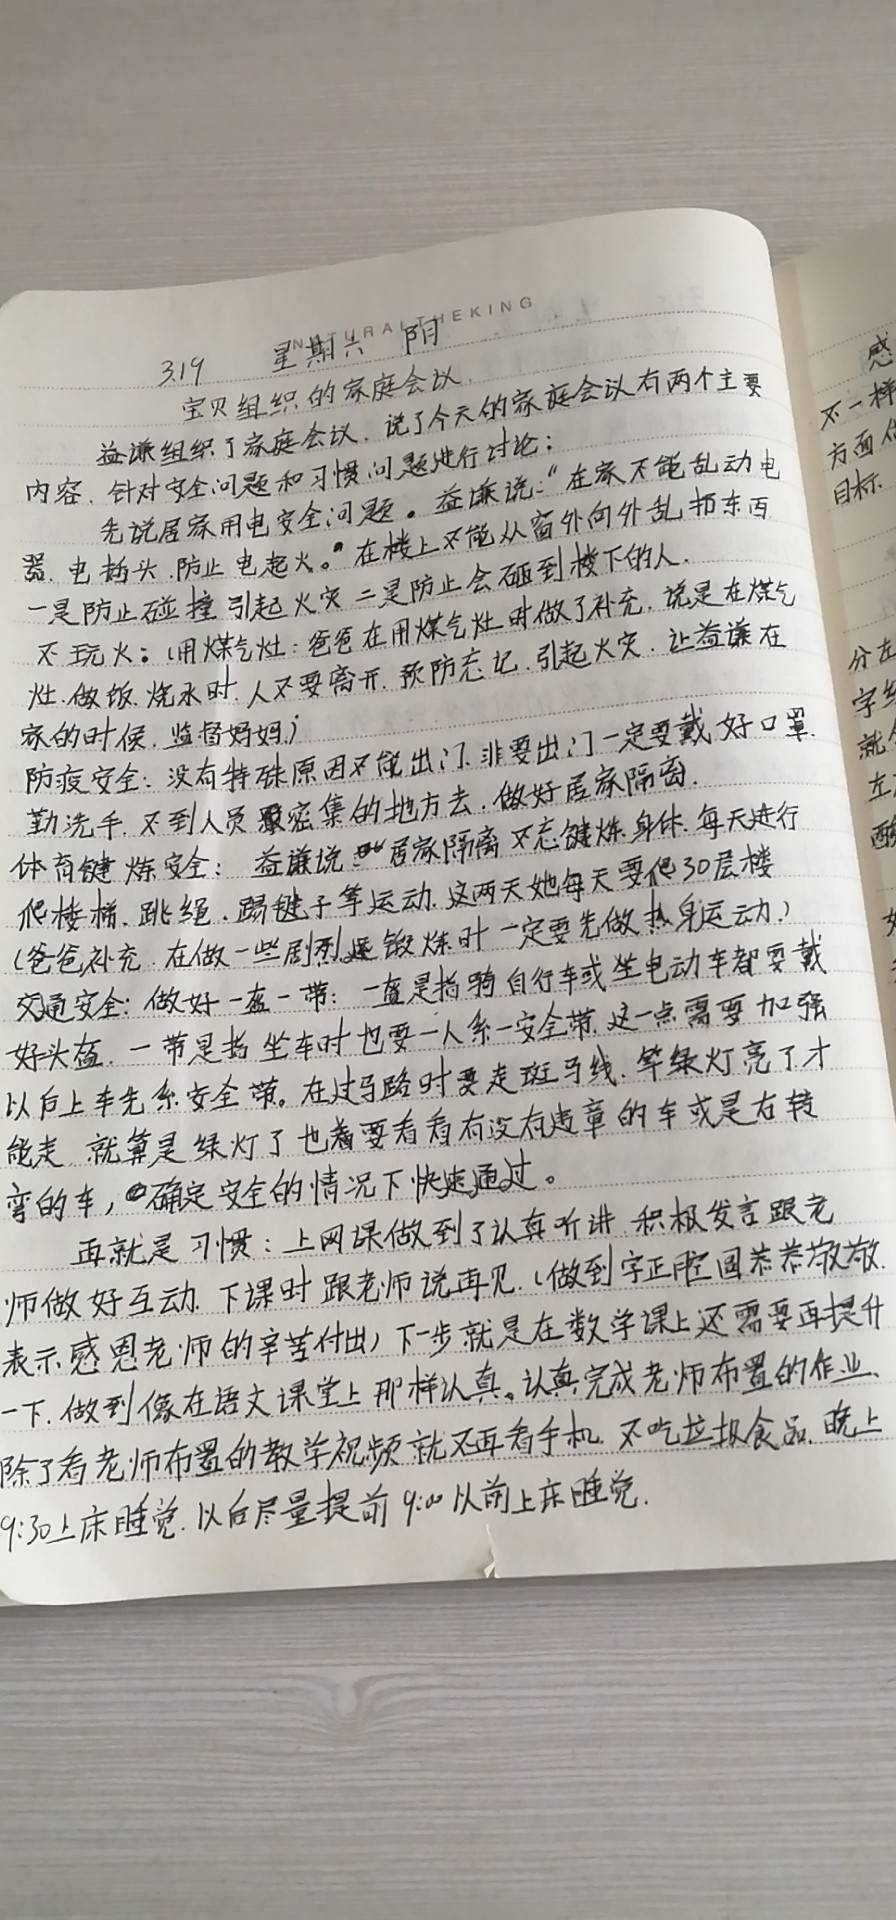 NATURALTHEKING
3.19 星期六 阴
宝贝组织的家庭会议.
益谦组织了家庭会议.说了今天的家庭会议有两个主要
内容.针对安全问题和习惯问题进行讨论:
先说居家用电安全问题。益谦说:“在家不能乱动电
器.电插头.防止电起火。”在楼上不能从窗外向外乱扔东西
一是防止碰撞引起火灾二是防止会砸到楼下的人.
不玩火:(用煤气灶:爸爸在用煤气灶时做了补充.说是在煤气
灶.做饭.烧水时.人不要离开.预防忘记.引起火灾.让益谦在
家的时候.监督妈妈)
防疫安全:没有特殊原因不能出门.非要出门一定要戴好口罩.
勤洗手.不到人员密集的地方去.做好居家隔离.
体育键炼安全:益谦说:“居家隔离不忘键炼身体.每天进行
爬楼梯.跳绳.踢毽子等运动.这两天她每天要爬30层楼
(爸爸补充.在做一些剧烈锻炼时一定要先做热身运动.)
交通安全:做好一盔一带:一盔是指骑自行车或坐电动车都要戴
好头盔.一带是指坐车时也要一人系一安全带.这一点需要加强
以后上车先系安全带。在过马路时要走斑马线.等绿灯亮了才
能走.就算是绿灯了也要看看有没有违章的车或是右转
弯的车,确定安全的情况下快速通过。
再就是习惯:上网课做到了认真听讲.积极发言跟老
师做好互动.下课时跟老师说再见.(做到字正腔圆恭恭敬敬.
表示感恩老师的辛苦付出)下一步就是在数学课上还需要再提升
一下.做到像在语文课堂上那样认真。认真完成老师布置的作业、
除了看老师布置的教学视频就不再看手机.不吃垃圾食品.晚上
9:30上床睡觉.以后尽量提前9:00以前上床睡觉.
感
不一样
方面
目标.
分左
字
就
左
好